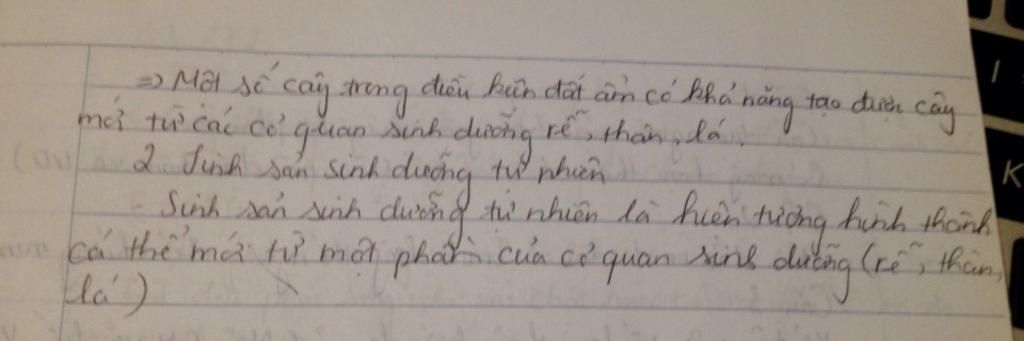 => Một số cây trong điều kiện đất ẩm có khả năng tạo được cây
mới từ các cơ quan sinh dưỡng rễ, thân, lá.
2 Sinh sản sinh dưỡng tự nhiên
- Sinh sản sinh dưỡng tự nhiên là hiện tượng hình thành
cá thể mới từ một phần của cơ quan sinh dưỡng (rễ, thân,
lá)
I
K